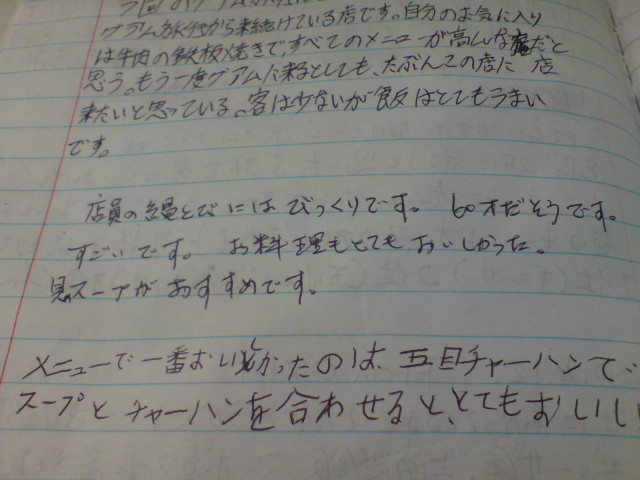 今回のグアム
グアム旅行から来続けている店です。自分のお気に入り
は牛肉の鉄板焼きで、すべてのメニューが高い だと
思う。もう一度グアムに来るとしても、たぶんこの店に 店
来たいと思っている。客は少ないが飯はとてもうまい
です。
店員の縄とびにはびっくりです。 60才だそうです。
すごいです。 お料理もとてもおいしかった。
貝スープがおすすめです。
メニューで一番おいしかったのは、五目チャーハンで
スープとチャーハンを合わせると、とてもおいしい